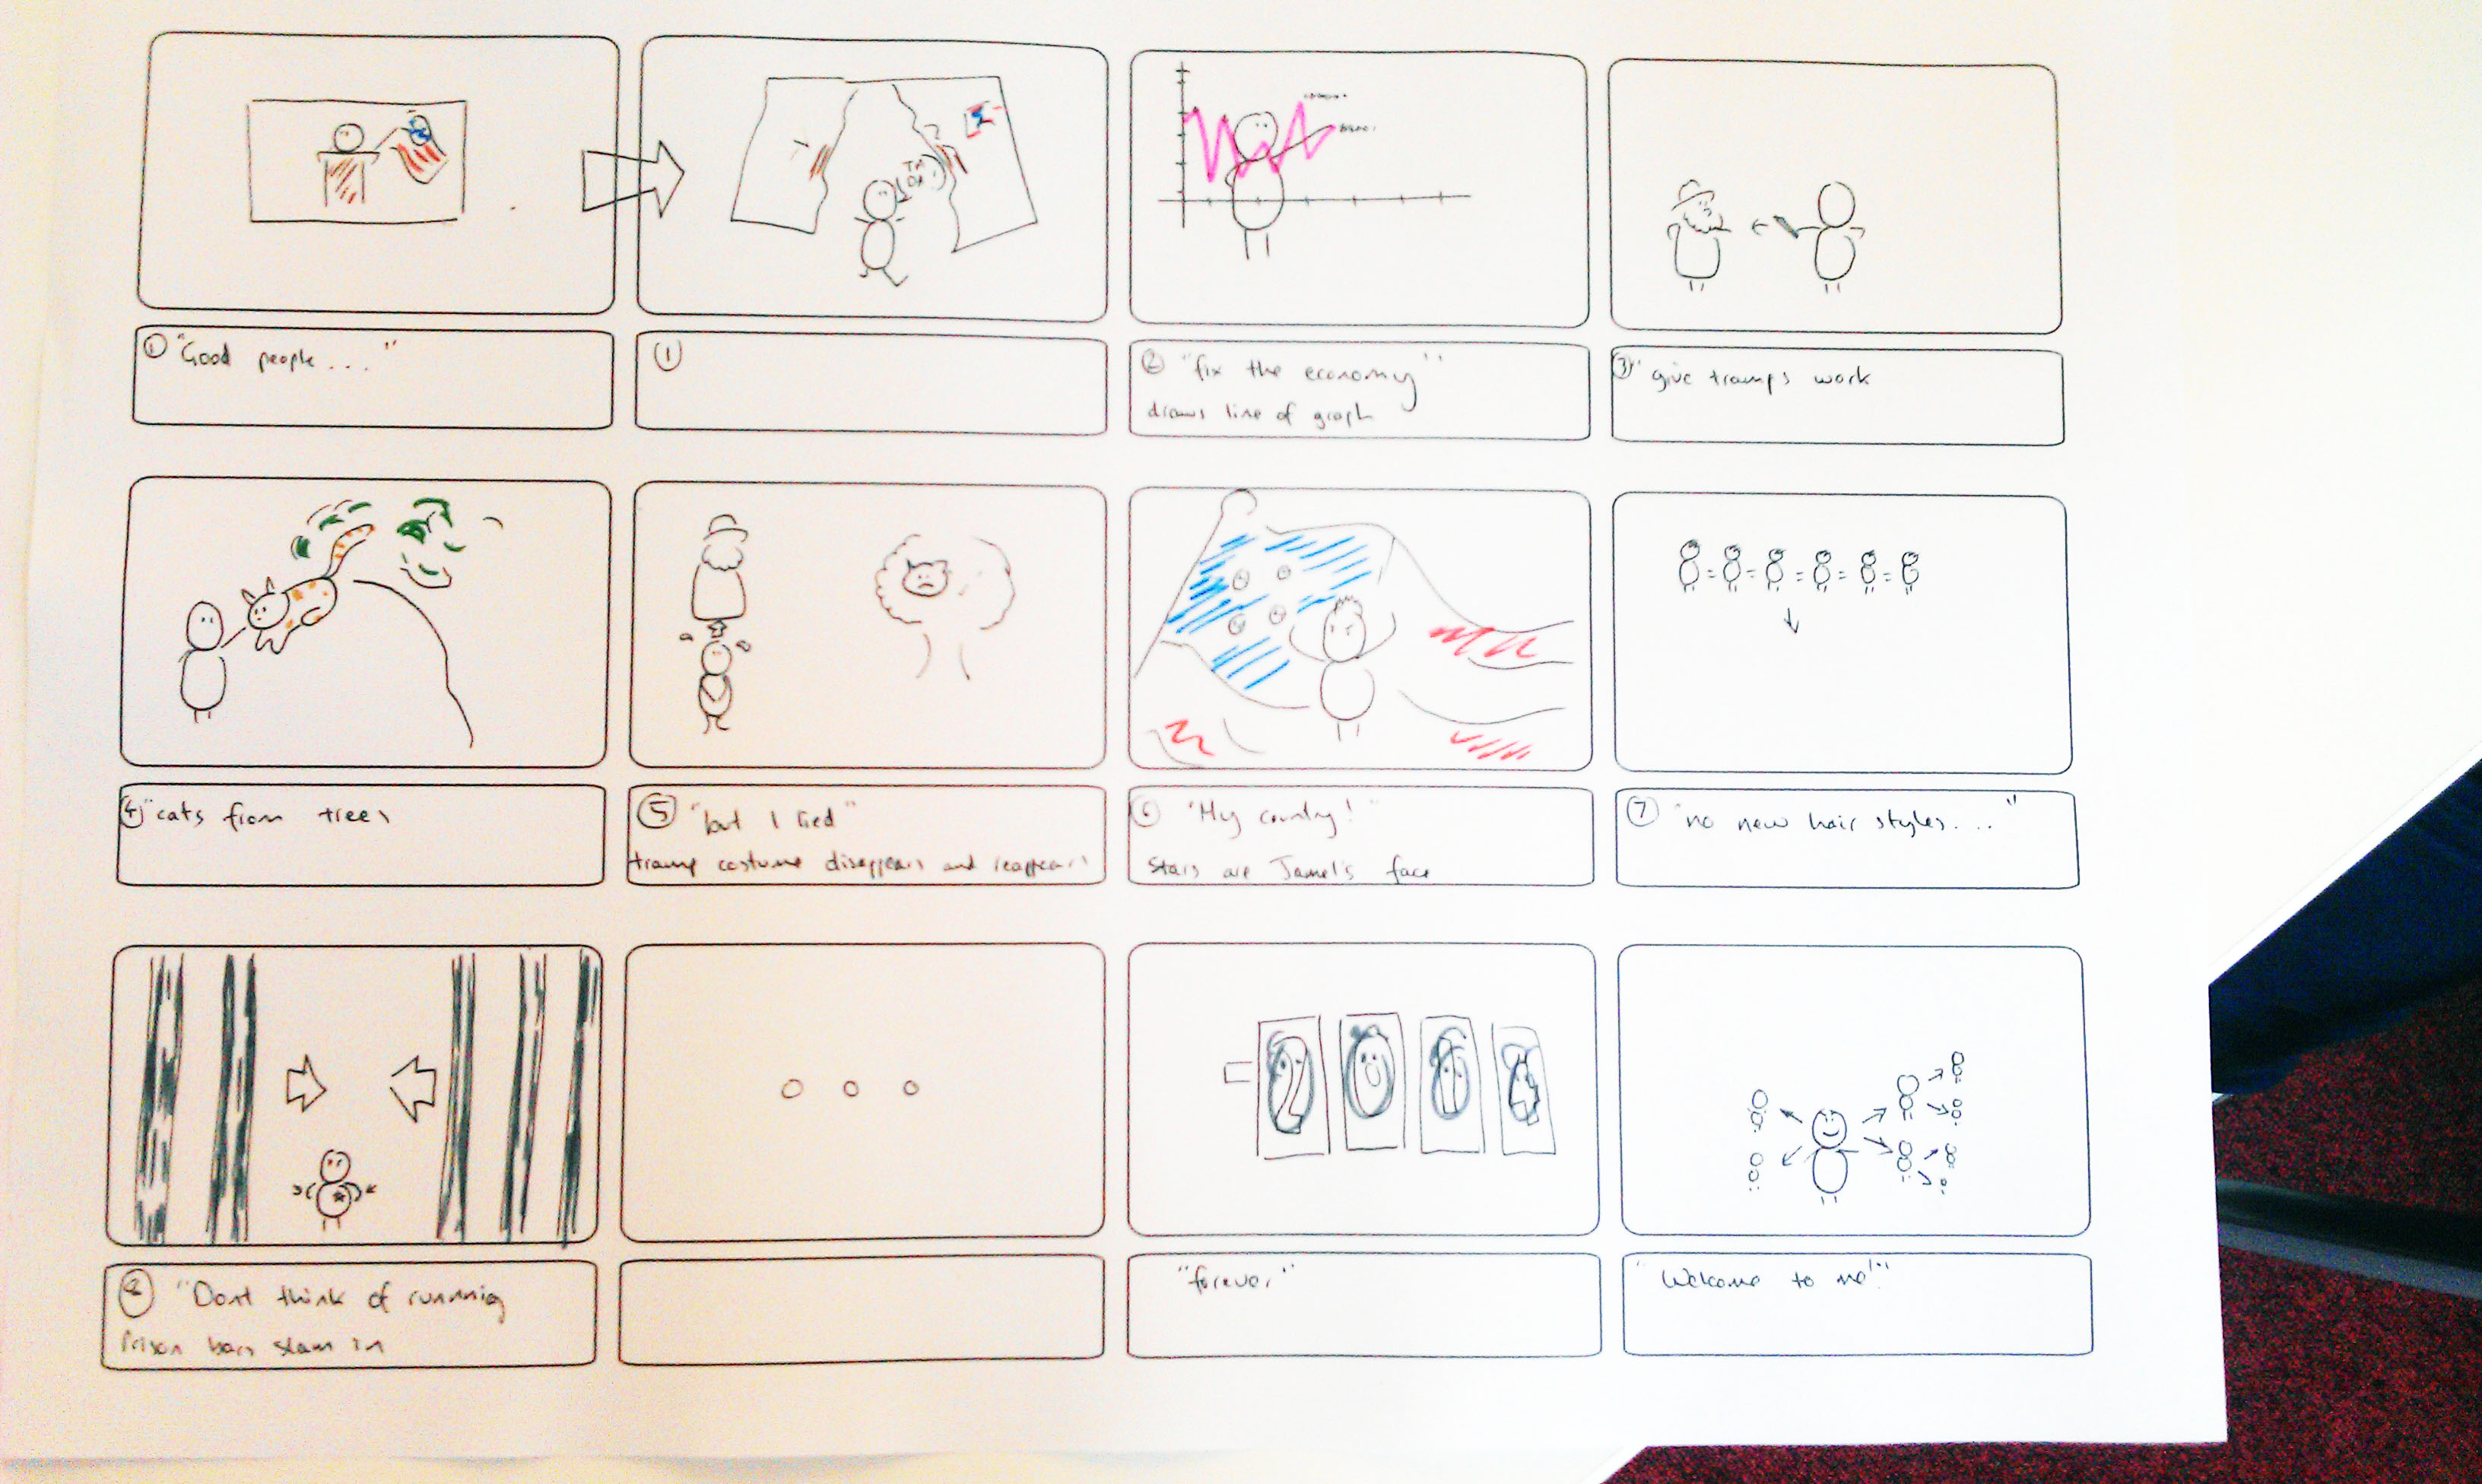 I'M
① "Good people..."
①
② "fix the economy"
draws line of graph
③ "give tramps work
④ "cats from trees
⑤ "but I lied"
tramp costume disappears and reappears
⑥ "My country!"
Stars are Jamel's face
⑦ "no new hair styles...."
⑧ "Dont think of running
Prison bars slam in
"forever"
"Welcome to me!"